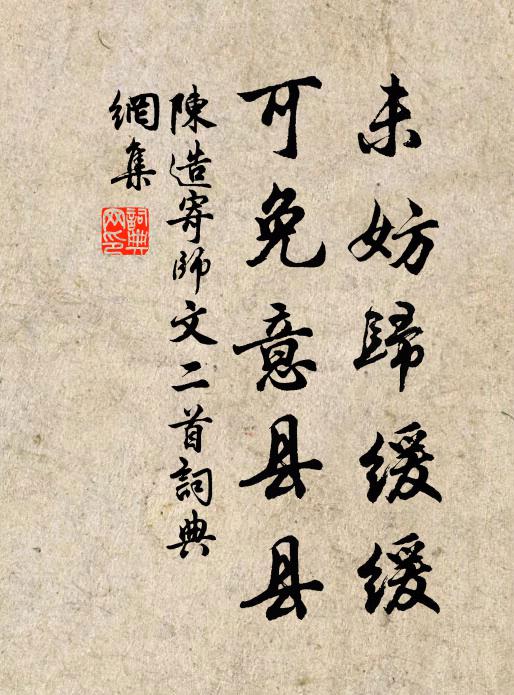 未妨歸緩緩
可免意县县
陳造寄師文二首詞典
網集
詞典
网印